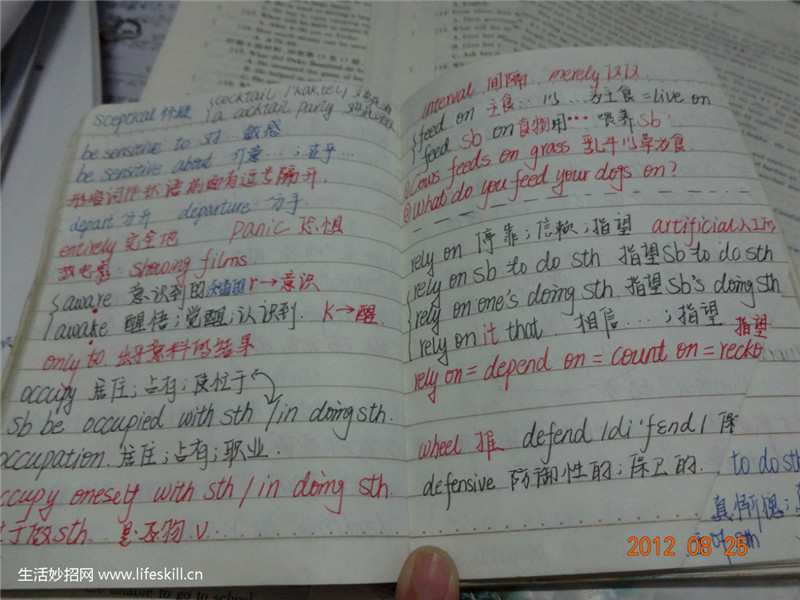 sceptical 怀疑
cocktail
a cocktail party
be sensitive to 对…敏感
be sensitive about 介意…；在乎…
形容词作状语前面有逗号隔开.
depart 分开 departure 分手
entirely 完全地 panic 恐惧
放电影: showing films
aware 意识到的 r→意识
awake 醒悟；觉醒；认识到. k→醒
only to 出乎意料的结果
occupy 居住；占有；使忙于
sb be occupied with sth / in doing sth.
occupation. 居住；占有；职业.
occupy oneself with sth / in doing sth.
忙于做sth. 是及物 v
interval 间隔. merely 仅仅
feed on 主食… 以…为主食=live on
feed sb on 食物 用…喂养sb
①Cows feeds on grass 乳牛以草为食.
②What do you feed your dogs on?
rely on 依靠；信赖；指望 artificial 人工的
rely on sb to do sth 指望sb to do sth
rely on one's doing sth. 指望sb's doing sth
rely on it that 相信…；指望
指望
rely on = depend on = count on = recko
wheel 推 defend /di'fend/ 保
defensive 防御性的；保卫的. to do sth
真惭愧；
2012 08 25
生活妙招网 www.lifeskill.cn
unable to go to school